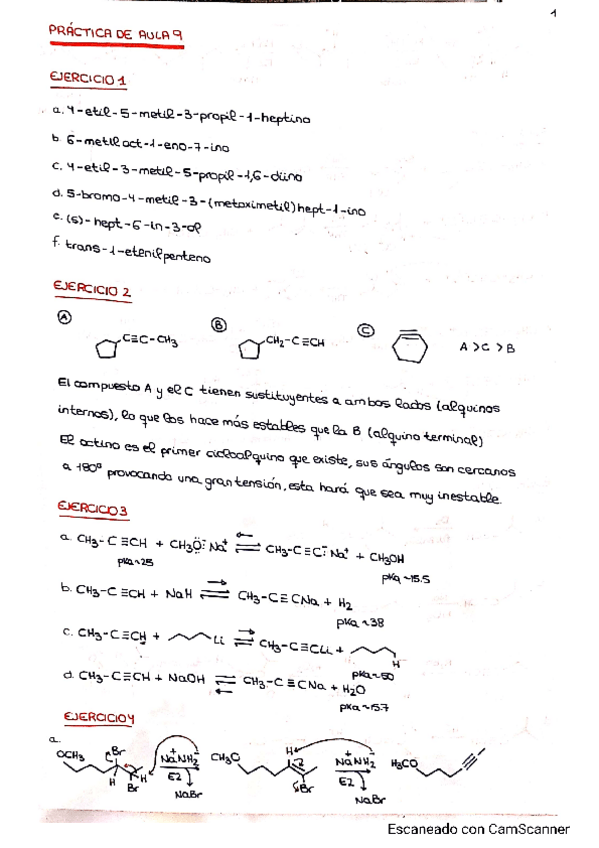 1
PRÁCTICA DE AULA 9
EJERCICIO 1
a. 4-etil-5-metil-3-propil-1-heptino
b. 6-metiloct-1-eno-7-ino
c. 4-etil-3-metil-5-propil-1,6-diino
d. 5-bromo-4-metil-3-(metoximetil)hept-1-ino
e. (s)-hept-6-in-3-ol
f. trans-1-etenilpenteno
EJERCICIO 2
A C≡C-CH3 B CH2-C≡CH C A>C>B
El compuesto A y el C tienen sustituyentes a ambos lados (alquinos
internos), lo que los hace más estables que la B (alquino terminal)
El octino es el primer cicloalquino que existe, sus ángulos son cercanos
a 180º provocando una gran tensión, esta hará que sea muy inestable.
EJERCICIO 3
a. CH3-C≡CH + CH3O:⁻ Na⁺ ⇌ CH3-C≡C:⁻ Na⁺ + CH3OH
pKa~25 pKa~15.5
b. CH3-C≡CH + NaH ⇌ CH3-C≡CNa + H2
pKa~38
c. CH3-C≡CH + Li ⇌ CH3-C≡CLi + H
pKa~50
d. CH3-C≡CH + NaOH ⇌ CH3-C≡CNa + H2O
pKa~15.7
EJERCICIO 4
a.
OCH3 Br H Br H NaNH2 E2 NaBr CH3O H Br NaNH2 E2 NaBr H3CO
Escaneado con CamScanner